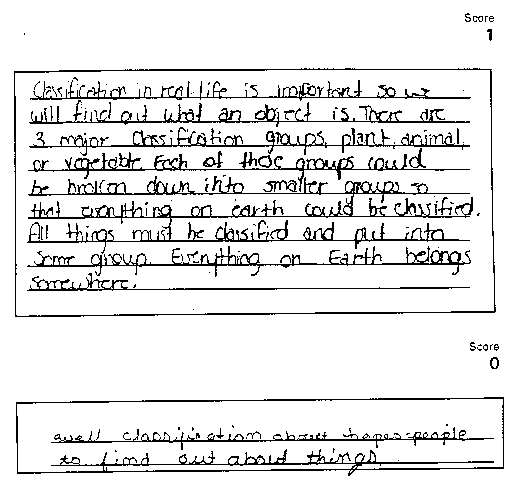 Score
1
Classification in real life is important so we
will find out what an object is. There are
3 major classification groups, plant, animal,
or vegetable. Each of those groups could
be broken down into smaller groups so
that everything on earth could be classified.
All things must be classified and put into
some group. Everything on Earth belongs
somewhere.
Score
0
well classification about hapes people
to find out about things